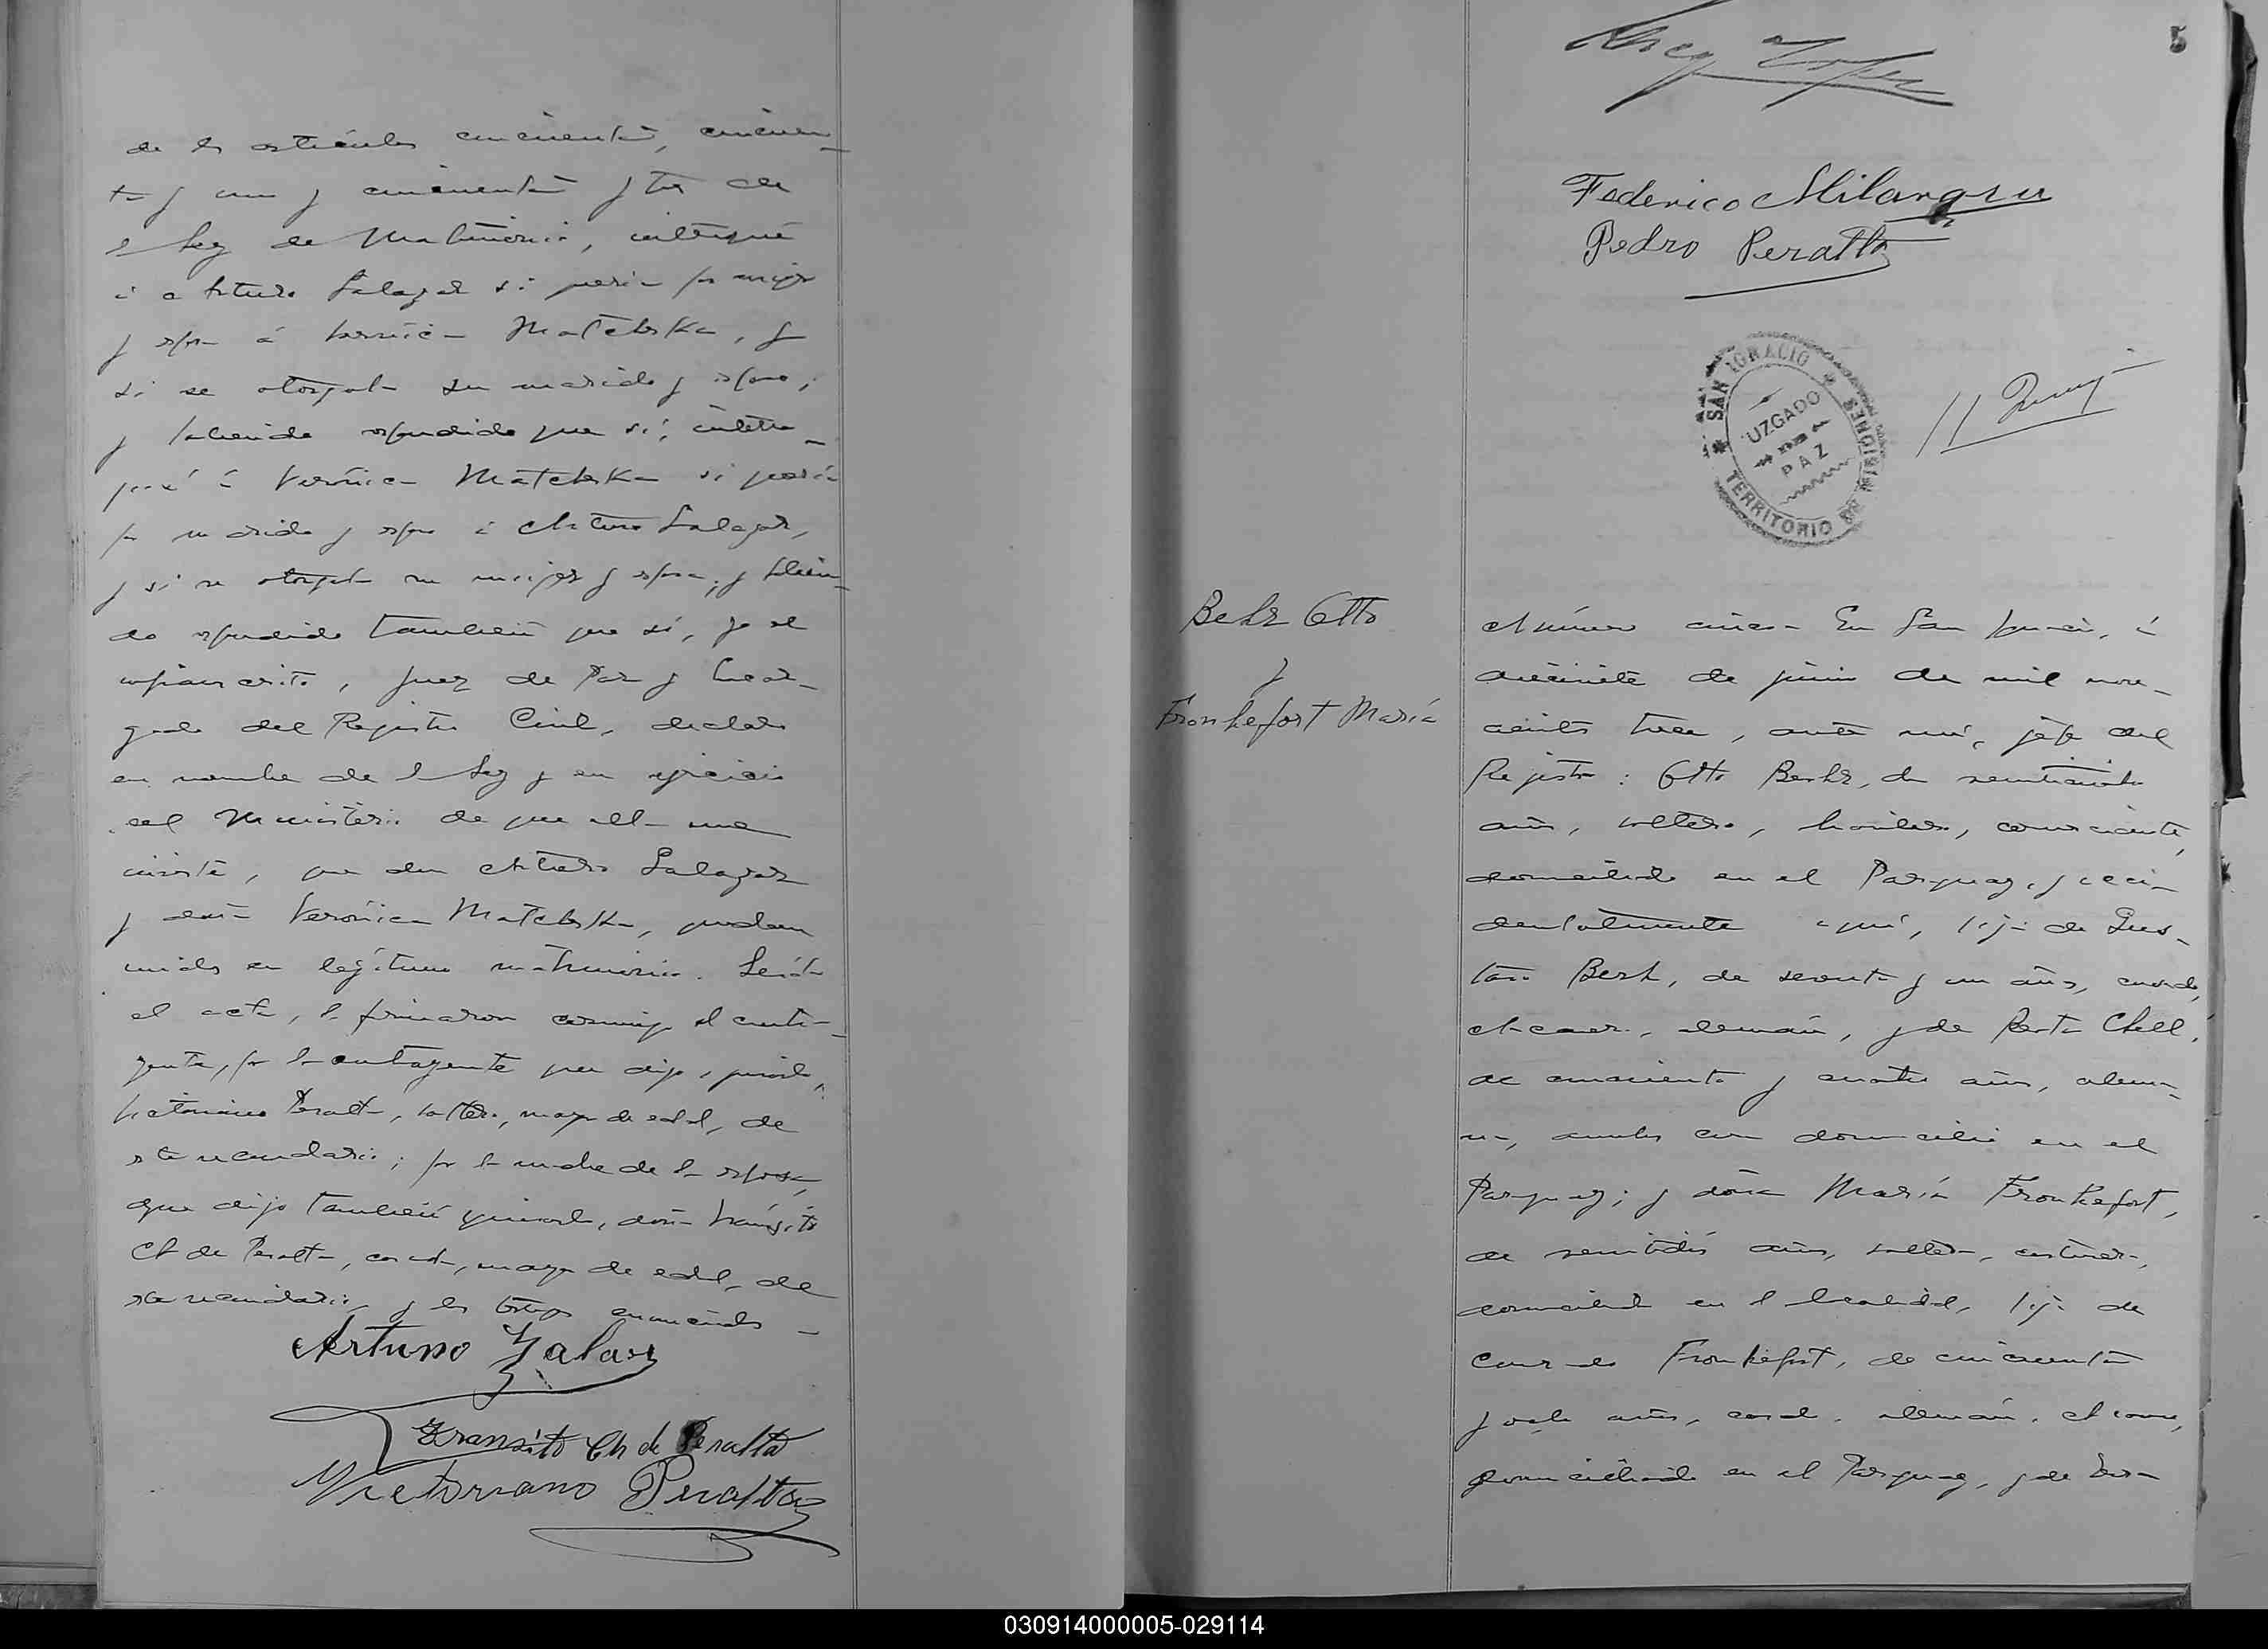 de los artículos cincuenta, cincuen-
ta y uno y cincuenta y tres de
la Ley de Matrimonio, interrogué
a Arturo Salazar si quería por mujer
y esposa á Verónica Matchoska, y
si se otorgaba su marido y esposo;
y habiendo respondido que sí, interro-
gué á Verónica Matchoska si quería
por marido y esposo á Arturo Salazar,
y si se otorgaba su mujer y esposa; y habien-
do respondido también que sí, yo el
infrascrito, Juez de Paz y Encar-
gado del Registro Civil, declaro
en nombre de la Ley y en ejercicio
del Ministerio de que ella me
inviste, que don Arturo Salazar
y doña Verónica Matchoska, quedan
unidos en legítimo matrimonio. Leída
el acta, la firmaron conmigo el contra-
yente, por la contrayente que dijo
Victoriano Peralta, soltero, mayor de edad, de
este vecindario; por la madre de la esposa,
que dijo también doña Tránsito
Ch de Peralta, casada, mayor de edad, del
este vecindario, y los testigos enunciados -
Arturo Salazar
Transito Ch de Peralta
Victoriano Peralta
5
Federico
Pedro Peralta
SAN IGNACIO
JUZGADO
DE
PAZ
TERRITORIO DE MISIONES
11
Behr Otto
y
Fronkefort María
Número cinco - En San Ignacio, á
diecisiete de junio de mil nove-
cientos trece, ante mí, jefe del
Registro: Otto Berhr, de veinticinco
años, soltero, comerciante,
domiciliado en el Paraguay, y acci-
dentalmente aquí, hijo de Gus-
tavo Berh, de sesenta y un años, casado,
alemán, y de Berta Chell,
de cincuenta y cuatro años, alema-
na, ambos con domicilio en el
Paraguay; y doña María Fronkefort,
de veintidós años, soltera, costurera,
domiciliada en la localidad, hija de
Conrado Fronkefort, de cincuenta
y ocho años, casado, alemán,
domiciliado en el Paraguay, y de